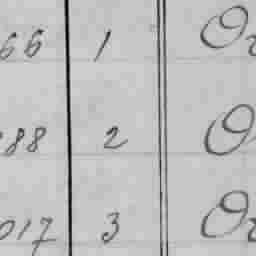 66 1 Or
88 2 O
017 3 Or